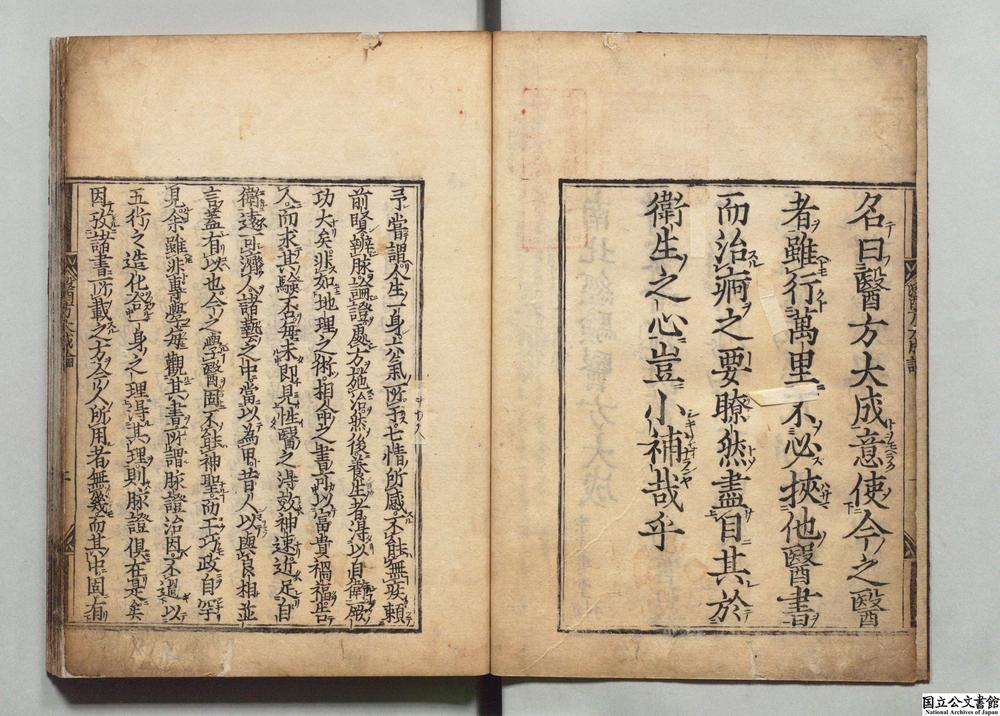 名曰醫方大成意使今之醫
者雖行萬里不必挾他醫書
而治病之要瞭然盡目其於
衛生之心豈小補哉乎
予嘗謂人生一身六氣所干七情所感不能無疾賴
前賢辨脉論證處方施治然後養生者得以自衛厥
功大矣非如地理之術相命之書可以富貴禍福告
人而求其驗否每未即見性醫之得效神速近足自
衛遠可濟人諸藝之中當以為甲昔人以與良相並
言蓋有以也今之學醫固不能神聖而工巧政自罕
見余雖非專學每觀其書所謂脉證治因不過以
五行之造化合一身之理得其理則脉證俱在是矣
因攷諸書所載之方今人所用者無幾而其中固有
醫方大成論
国立公文書館
National Archives of Japan